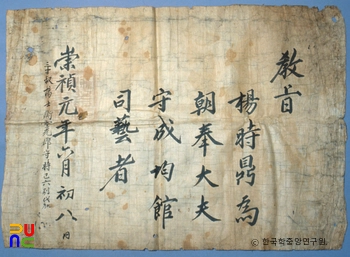 敎旨
楊時鼎爲
朝奉大夫
守成均館
司藝者
崇禎元年六月初八日
ⓒ 한국학중앙연구원